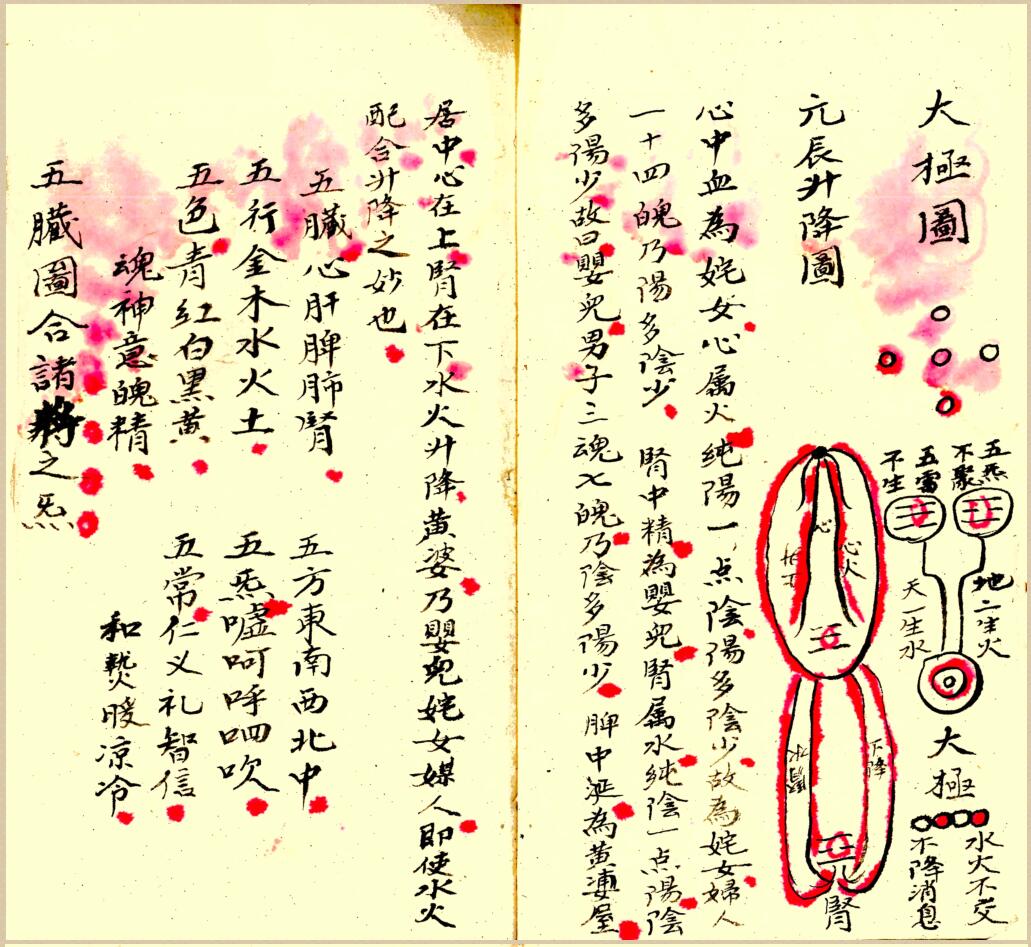 太極圖
五炁
不聚
五雷
不生
地二生火
天一生水
太極
水火不交
不降消息
元辰升降圖
心
心火
下降
腎水
元
腎
心中血為姹女心属火純陽一点陰陽多陰少故為姹女婦人
一十四魄乃陽多陰少 腎中精為嬰兒腎属水純陰一点陽陰
多陽少故曰嬰兒男子三魂七魄乃陰多陽少 脾中涎為黄婆屋
居中心在上腎在下水火升降黄婆乃嬰兒姹女媒人即使水火
配合升降之妙也
五臓心肝脾肺腎 五方東南西北中
五行金木水火土 五炁嘘呵呼呬吹
五色青紅白黒黄 五常仁义礼智信
魂神意魄精 和熱暖凉冷
五臓圖合諸將之炁